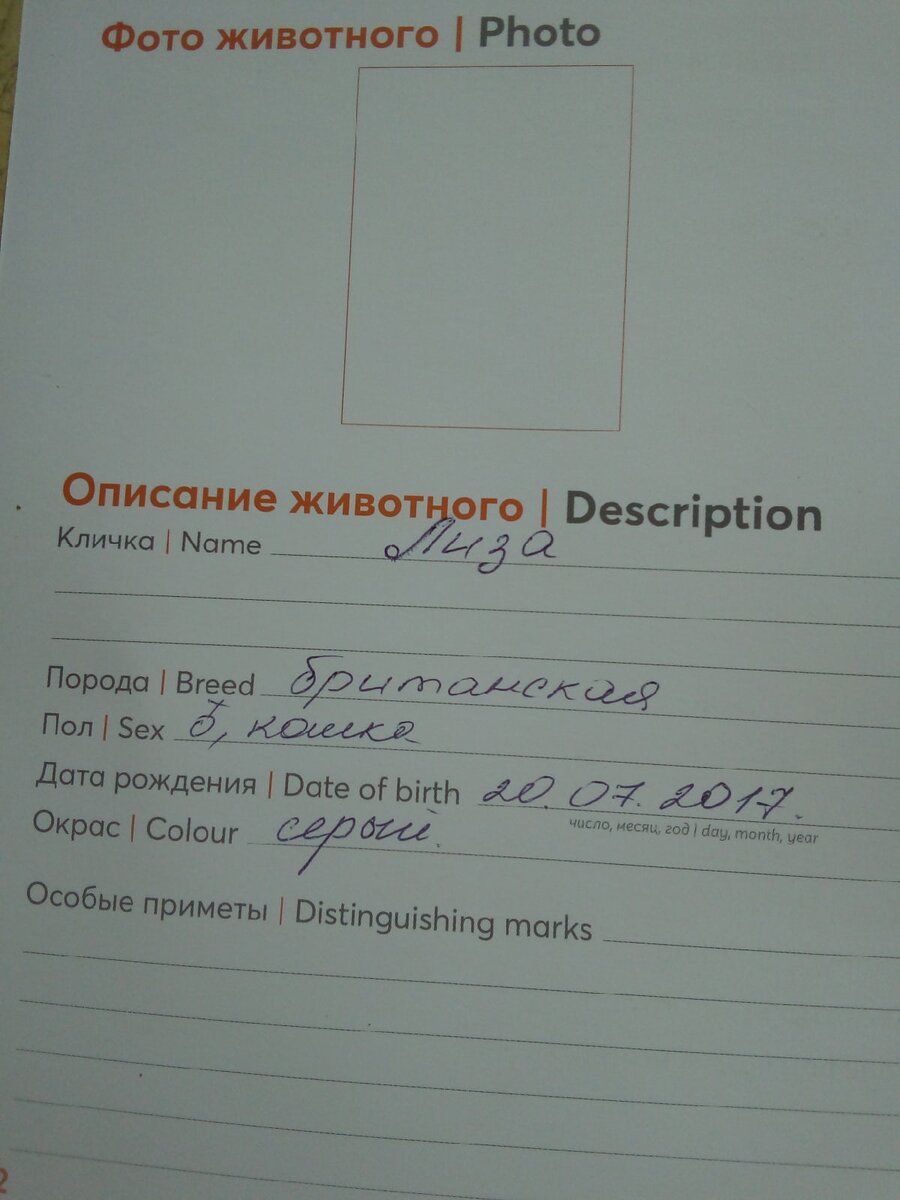 Фото животного | Photo
Описание животного | Description
Кличка | Name Лиза
Порода | Breed британская
Пол | Sex кошка
Дата рождения | Date of birth 20.07.2017.
число, месяц, год | day, month, year
Окрас | Colour серый.
Особые приметы | Distinguishing marks
2